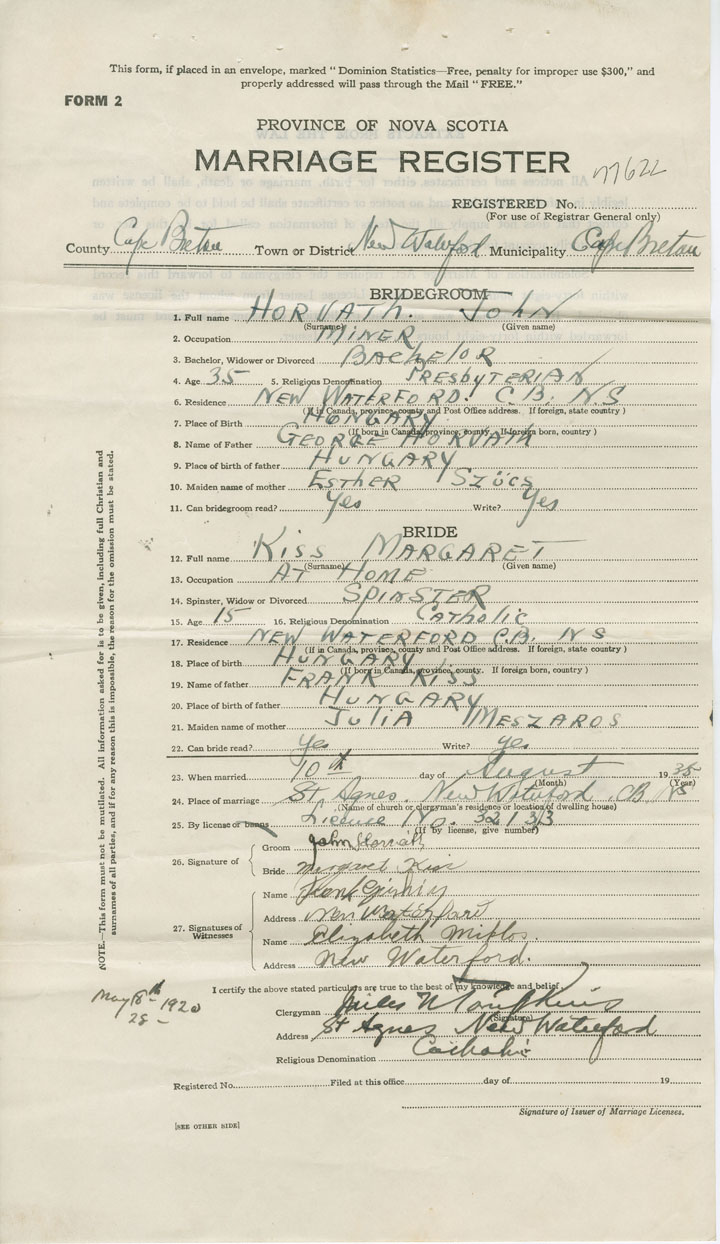 This form, if placed in an envelope, marked "Dominion Statistics—Free, penalty for improper use $300," and
properly addressed will pass through the Mail "FREE."
FORM 2
PROVINCE OF NOVA SCOTIA
MARRIAGE REGISTER
77622
REGISTERED No.
(For use of Registrar General only)
County Cape Breton Town or District New Waterford Municipality Cape Breton
BRIDEGROOM
1. Full name HORVATH. JOHN
(Surname) (Given name)
2. Occupation MINER
3. Bachelor, Widower or Divorced BACHELOR
4. Age 35 5. Religious Denomination PRESBYTERIAN
6. Residence NEW WATERFORD. C.B. N.S
(If in Canada, province, county and Post Office address. If foreign, state country )
7. Place of Birth HUNGARY
(If born in Canada, province, county. If foreign born, country )
8. Name of Father GEORGE HORVATH
9. Place of birth of father HUNGARY
10. Maiden name of mother ESTHER SZÜCS
11. Can bridegroom read? Yes Write? Yes
BRIDE
12. Full name KISS MARGARET
(Surname) (Given name)
13. Occupation AT HOME
14. Spinster, Widow or Divorced SPINSTER
15. Age 15 16. Religious Denomination CATHOLIC
17. Residence NEW WATERFORD C.B. N S
(If in Canada, province, county and Post Office address. If foreign, state country )
18. Place of birth HUNGARY
(If born in Canada, province, county. If foreign born, country )
19. Name of father FRANK KISS
20. Place of birth of father HUNGARY
21. Maiden name of mother JULIA MESZAROS
22. Can bride read? Yes Write? Yes
23. When married 10th day of August 1935
(Month) (Year)
24. Place of marriage St. Agnes. New Waterford. CB NS
(Name of church or clergyman's residence or location of dwelling house)
25. By license or banns Licence No. 321313
(If by license, give number)
26. Signature of
Groom John Horvath
Bride Margaret Kiss
27. Signatures of
Witnesses
Name
Address New Waterford
Name Elizabeth
Address New Waterford.
I certify the above stated particulars are true to the best of my knowledge and belief.
Clergyman Miles N Tompkins
(Signature)
Address St Agnes New Waterford
Religious Denomination Catholic
May 8th 1920
28-
Registered No. Filed at this office day of 19
Signature of Issuer of Marriage Licenses.
[SEE OTHER SIDE]
NOTE.—This form must not be mutilated. All information asked for is to be given, including full Christian and
surnames of all parties, and if for any reason this is impossible, the reason for the omission must be stated.